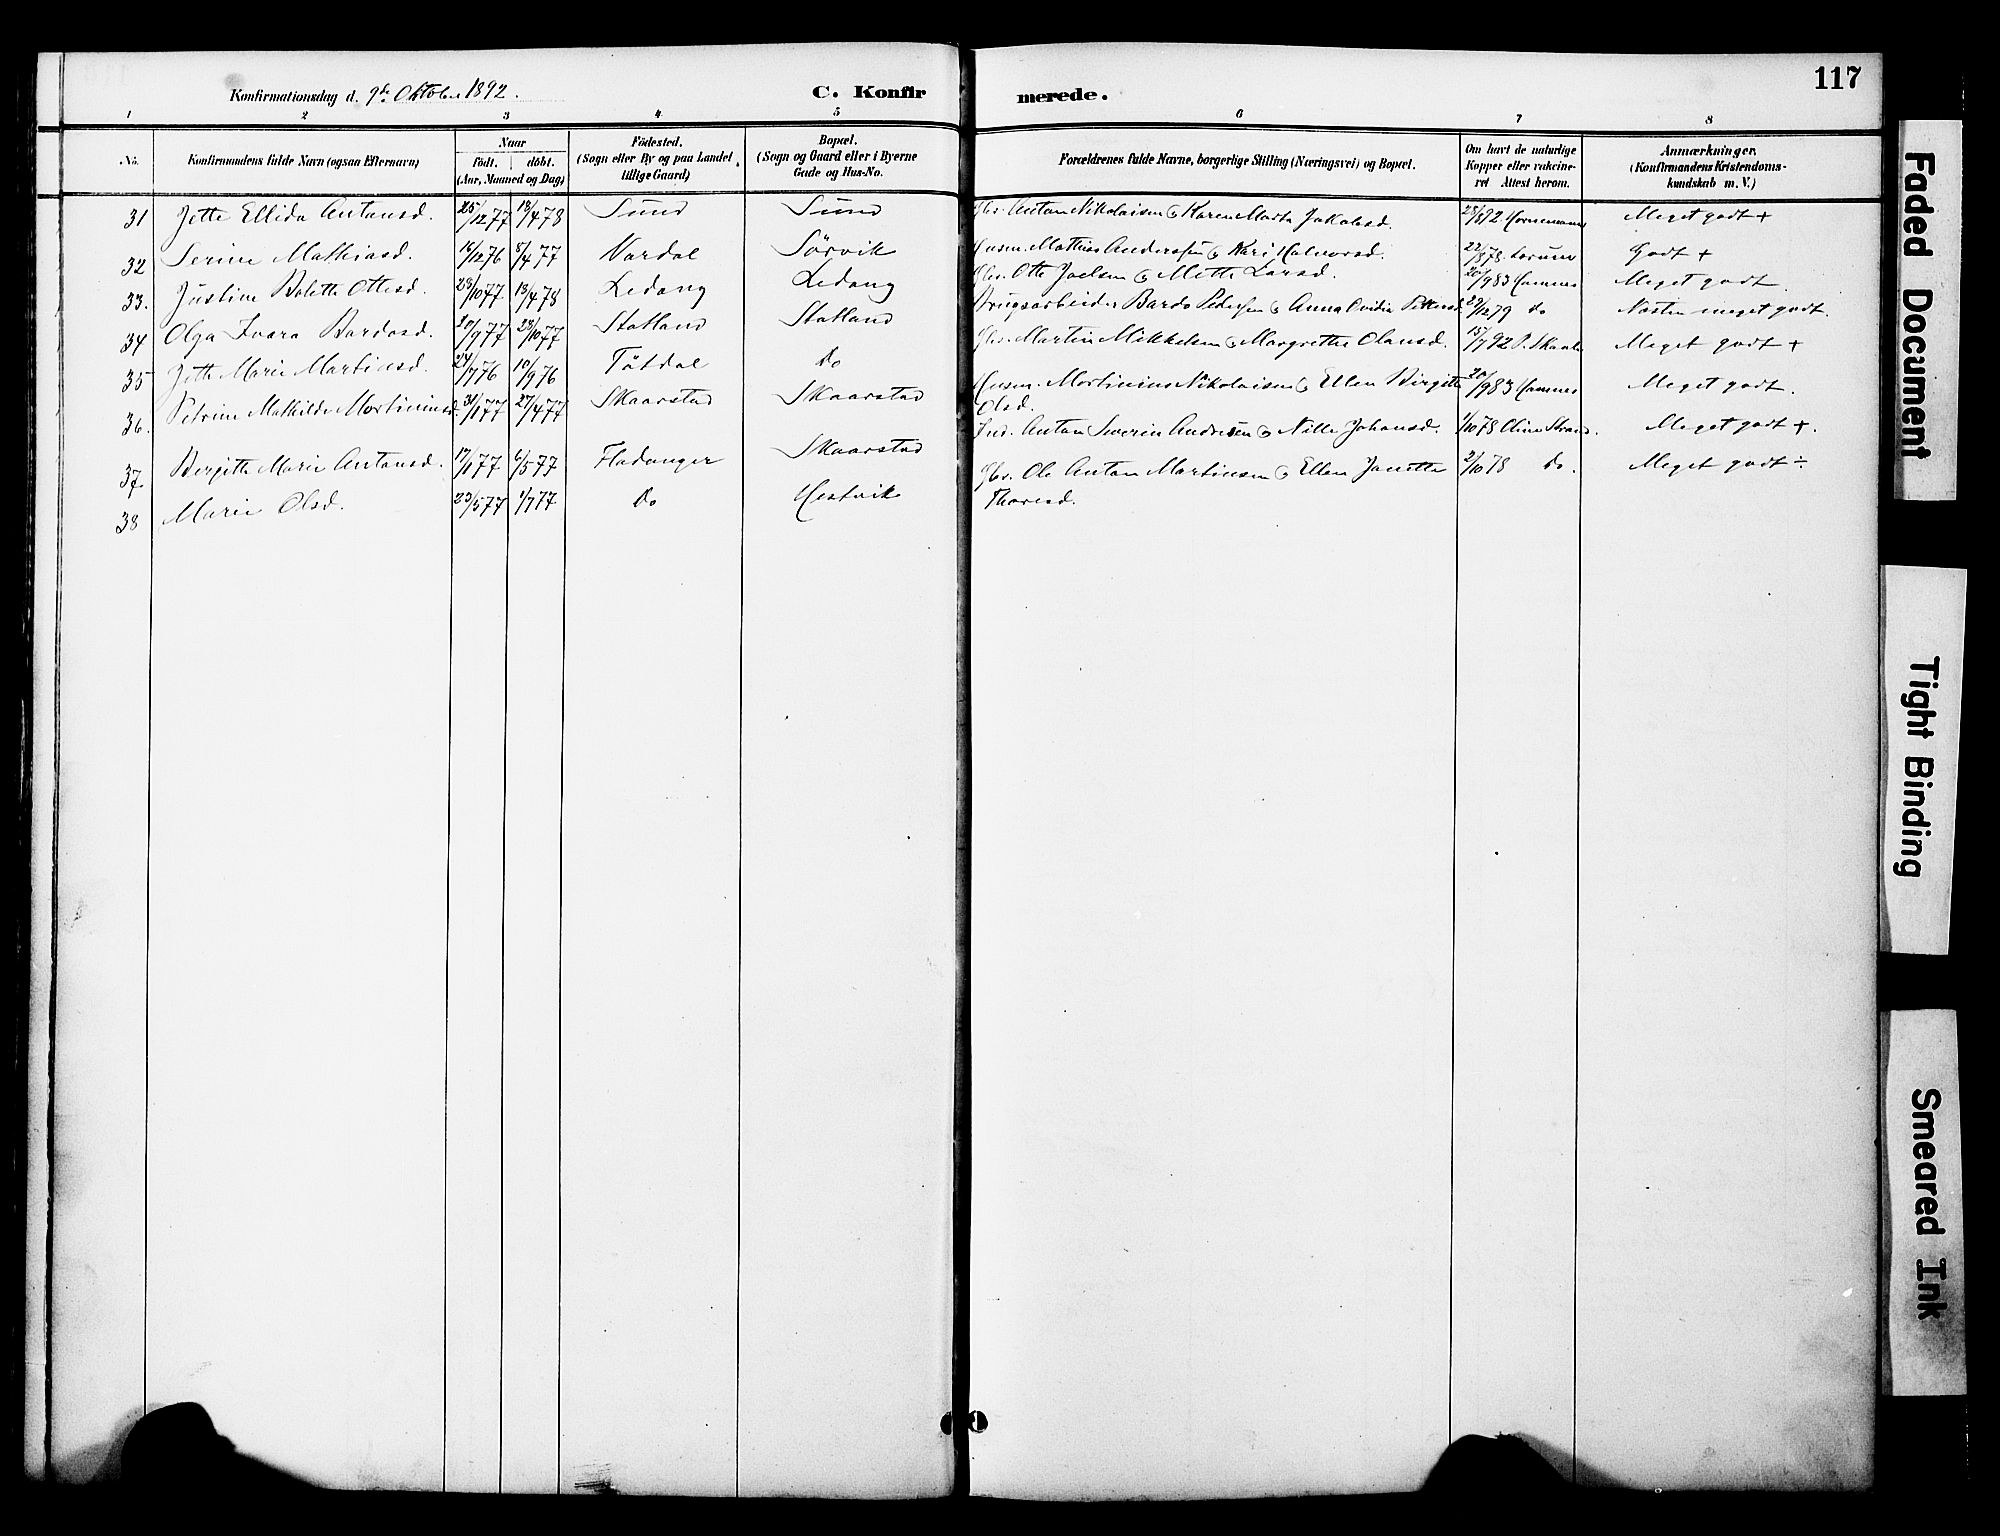 117
Konfirmationsdag d. 9de Oktober 1892.
C. Konfirmerede.
1 2 3 4 5 6 7 8
No.
Konfirmandens fulde Navn (ogsaa Efternavn)
Naar
födt. döbt.
(Aar, Maaned og Dag)
Födested.
(Sogn eller By og paa Landet
tillige Gaard)
Bopæl.
(Sogn og Gaard eller i Byerne
Gade og Hus-No.
Forældrenes fulde Navne, borgerlige Stilling (Næringsvei) og Bopæl.
Om havt de naturlige
Kopper eller vakcine-
ret Attest herom.
Anmærkninger.
(Konfirmandens Kristendoms-
kundskab m. V.)
31 Jette Ellida Antonsd. 25/12 77 18/4 78 Sund Sund Gbr. Anton Nikolaisen & Karen Marta Jakobsd. 28/8 92 Meget godt +
32 Serine Mathiasd. 16/12 76 8/4 77 Vardal Sörvik Husm. Mathias Anderssen & Kari Halvorsd. 22/8 78 Godt +
33. Justine Bolette Ottesd. 28/10 77 13/4 78 Ledang Ledang Gbr. Otte Joelsen & Mette Larsd. 20/9 83 Hamnes Meget godt.
34 Olga Ivara Bardosd. 20/9 77 28/10 77 Statland Statland Brugsarbeider Bardo Pedersen & Anna Ovidia Pettersd. 29/12 79 do Næsten meget godt.
35 Jette Marie Martinsd. 24/7 76 10/9 76 Tötdal Do Gbr. Martin Mikkelsen & Margrethe Olausd. 15/7 92 P. Skaale Meget godt +
36. Petrine Mathilde Mortiniusd. 31/1 77 27/4 77 Skaarstad Skaarstad Husm. Mortinius Nikolaisen & Ellen Birgitte
Olsd. 20/9 83 Hamnes Meget godt.
37 Bergitte Marie Antonsd. 17/1 77 6/5 77 Fladanger Skaarstad Ind. Anton Severin Andresen & Nille Johansd. 1/10 78 Oline Strand. Meget godt +.
38 Marie Olsd. 23/5 77 1/7 77 Do Hestvik Gbr. Ole Anton Martinsen & Ellen Janette
Thoresd. 2/10 78 Do. Meget godt ÷
Faded Document
Tight Binding
Smeared Ink